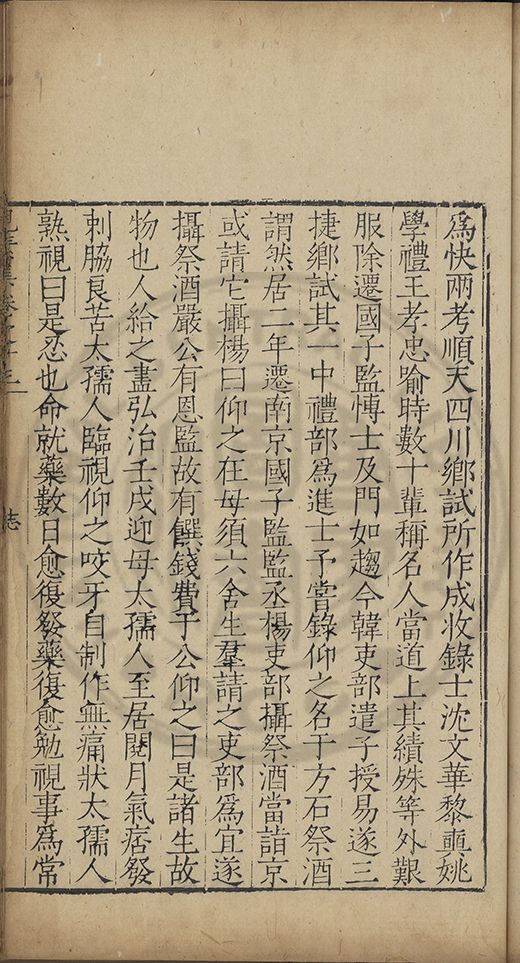 爲快兩考順天四川鄉試所作成收錄士沈文華黎亶姚
學禮王孝忠喻時數十輩稱名人當道上其績殊等外艱
服除遷國子監愽士及門如趨今韓吏部遣子授易遂三
捷鄉試其一中禮部爲進士予嘗錄仰之名于方石祭酒
謂然居二年遷南京國子監監丞楊吏部攝祭酒當詣京
或請它攝楊曰仰之在毋須六舍生羣請之吏部爲宜遂
攝祭酒嚴公有恩監故有饌錢費于公仰之曰是諸生故
物也人給之盡弘治壬戌迎母太孺人至居閱月氣痞發
刺脇良苦太孺人臨視仰之咬牙自制作無痛狀太孺人
熟視曰是忍也命就藥數日愈復發藥復愈勉視事爲常
志